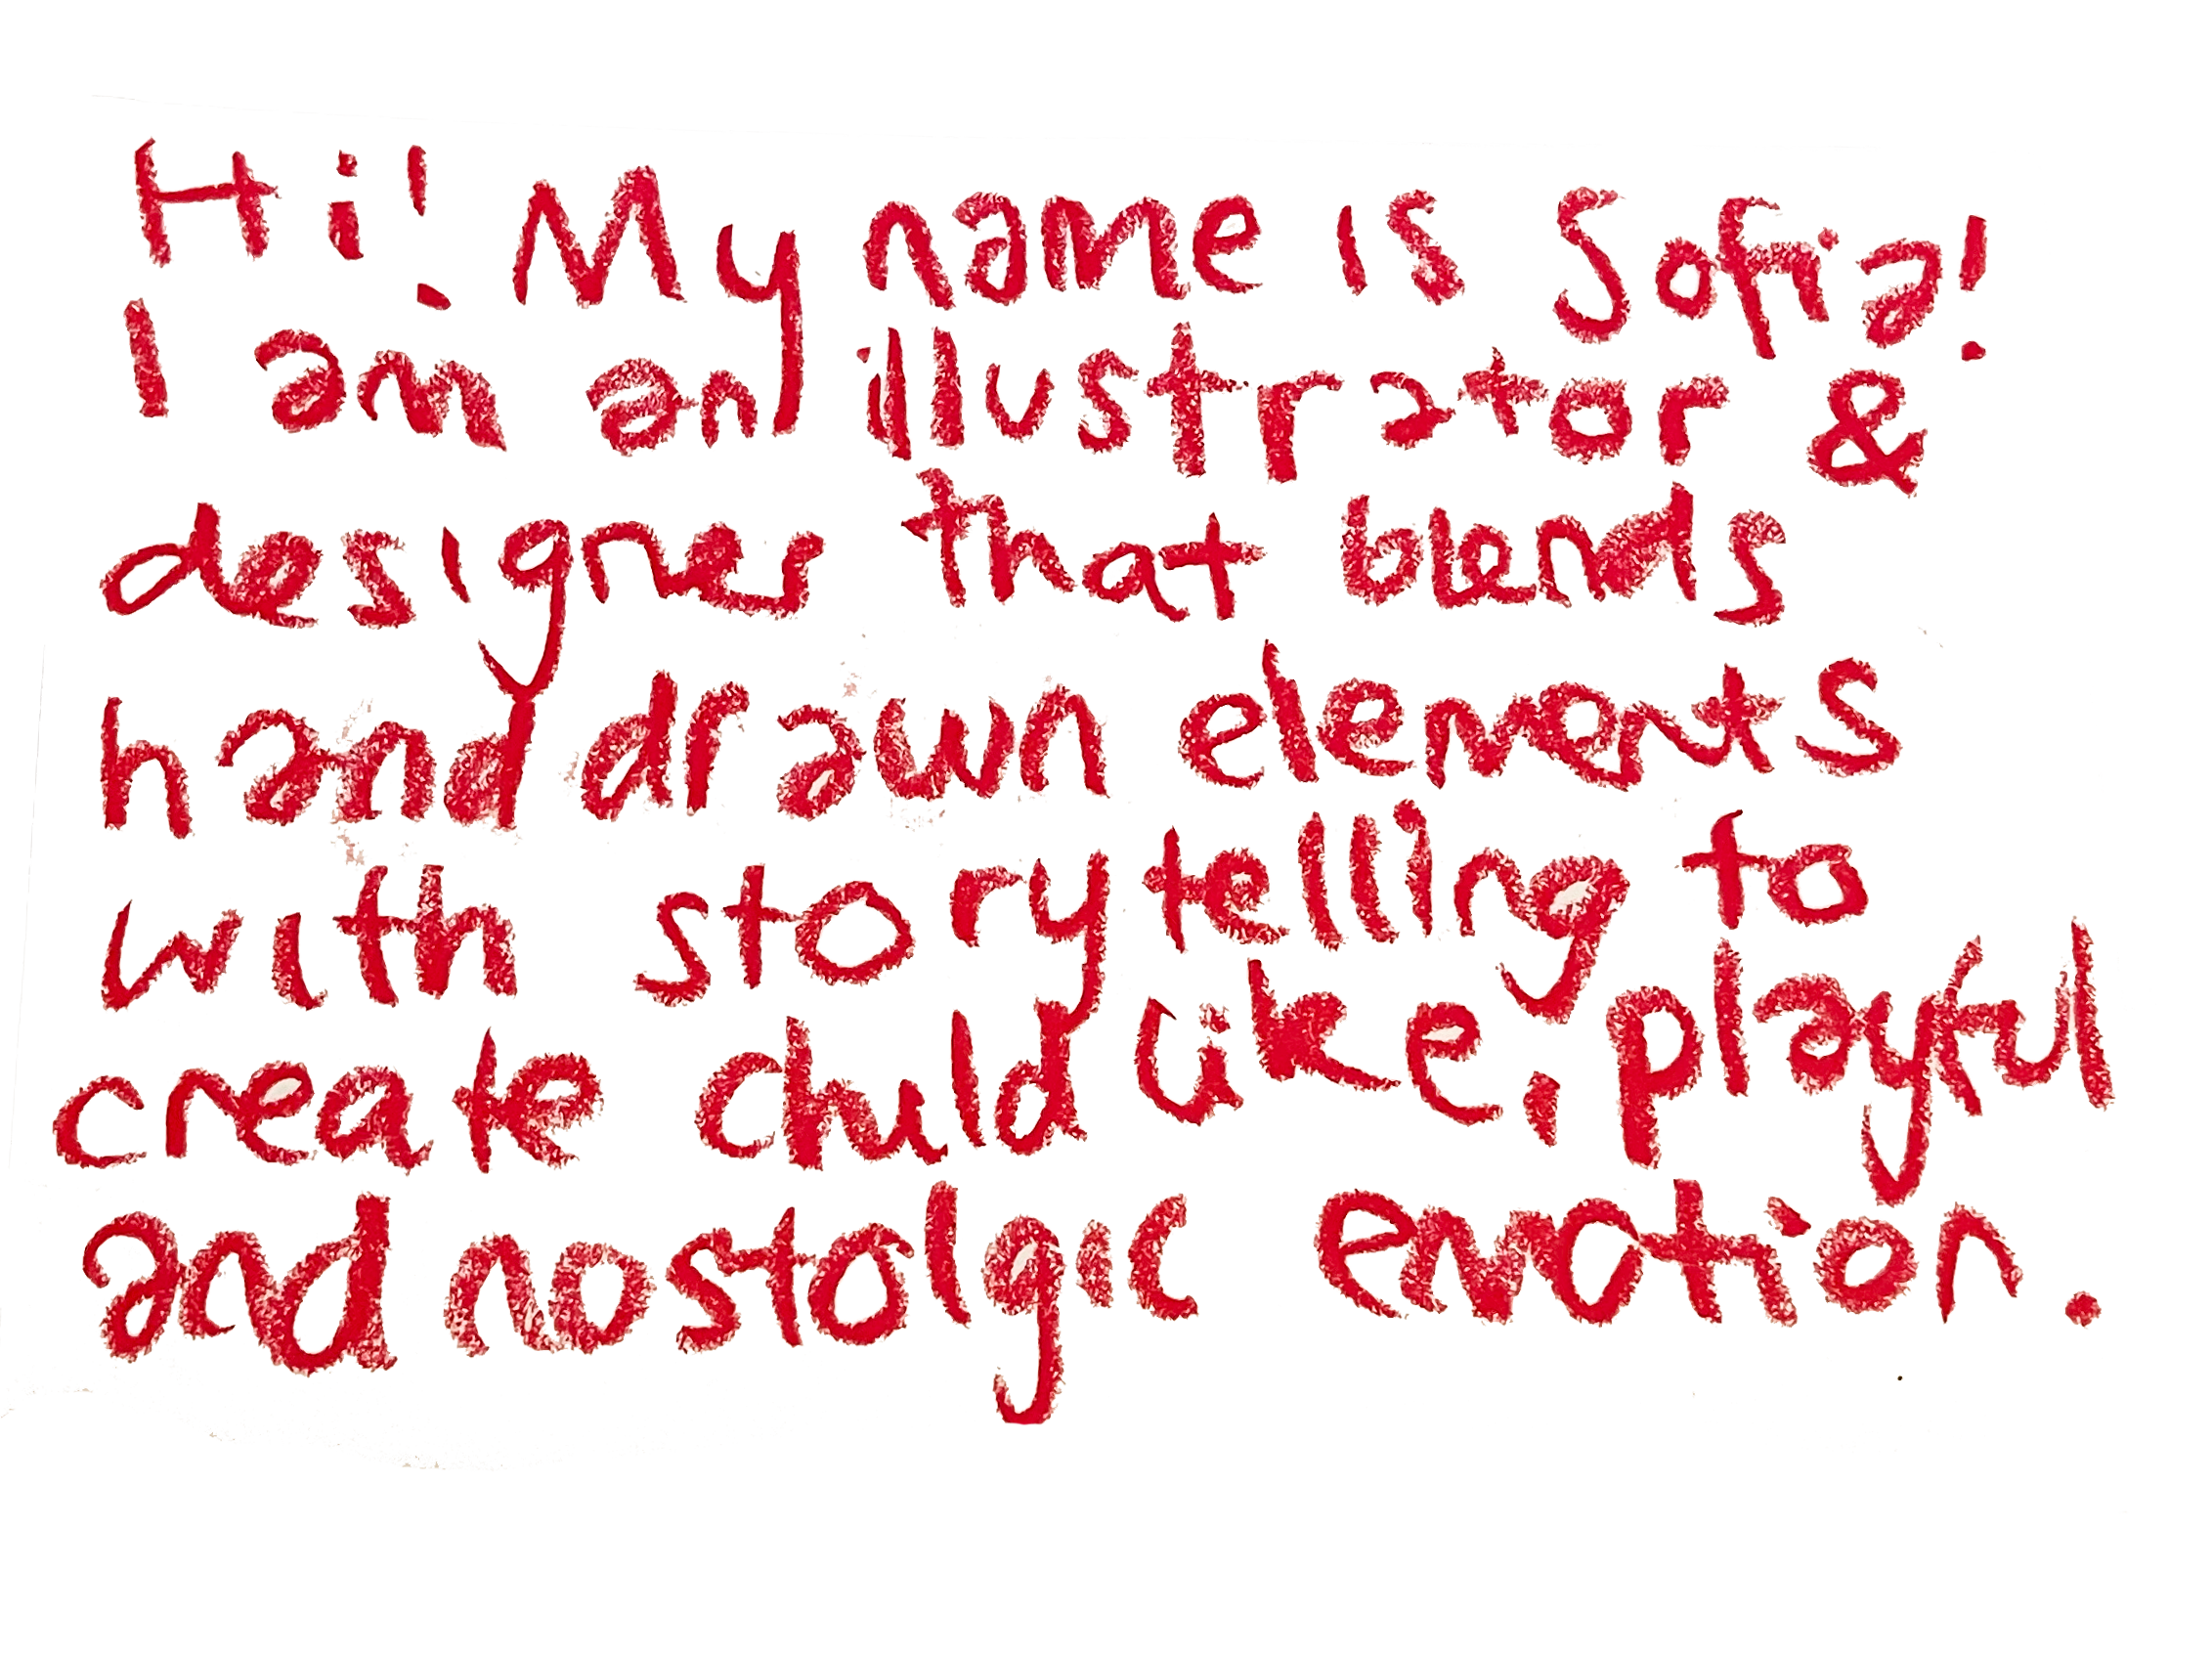 Hi! My name is Sofia!
I am an illustrator &
designer that blends
hand drawn elements
with storytelling to
create childlike, playful
and nostolgic emotion.